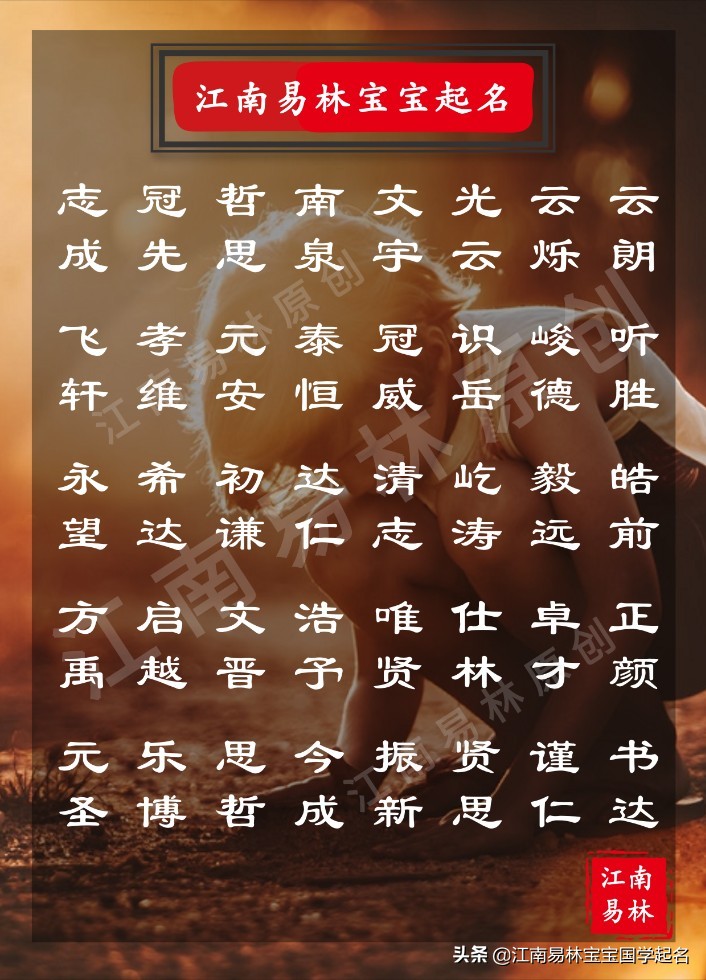 江南易林宝宝起名
志 冠 哲 南 文 光 云 云
成 先 思 泉 宇 云 烁 朗
飞 孝 元 泰 冠 识 峻 听
轩 维 安 恒 威 岳 德 胜
永 希 初 达 清 屹 毅 皓
望 达 谦 仁 志 涛 远 前
方 启 文 浩 唯 仕 卓 正
禹 越 晋 予 贤 林 才 颜
元 乐 思 今 振 贤 谨 书
圣 博 哲 成 新 思 仁 达
江南易林原创
江南易林原创
江南易林原创
江南
易林
头条 @江南易林宝宝国学起名